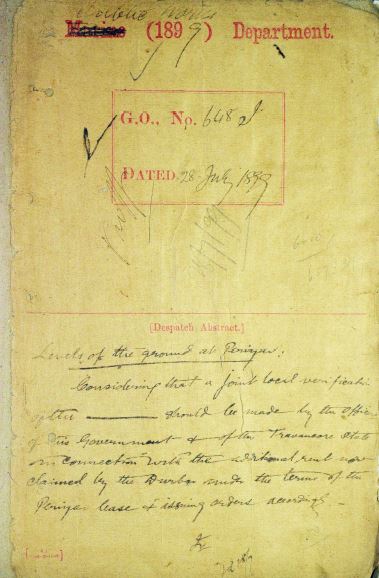 Public Works
Marine (1899) Department.
G.O., No. 648 I
DATED 28 July 1899
[Despatch Abstract.]
Levels of the ground at Periyar.
Considering that a joint local verificatio
of the ——— should be made by the Offic
of this Government & of the Travancore State
in connection with the additional rent now
claimed by the Durbar under the terms of the
Periyar lease & issuing orders accordingly